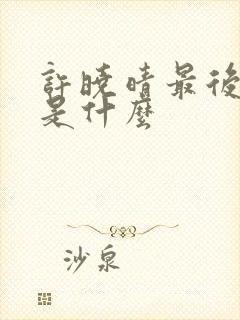 許曉晴最後
是什麼
沙泉